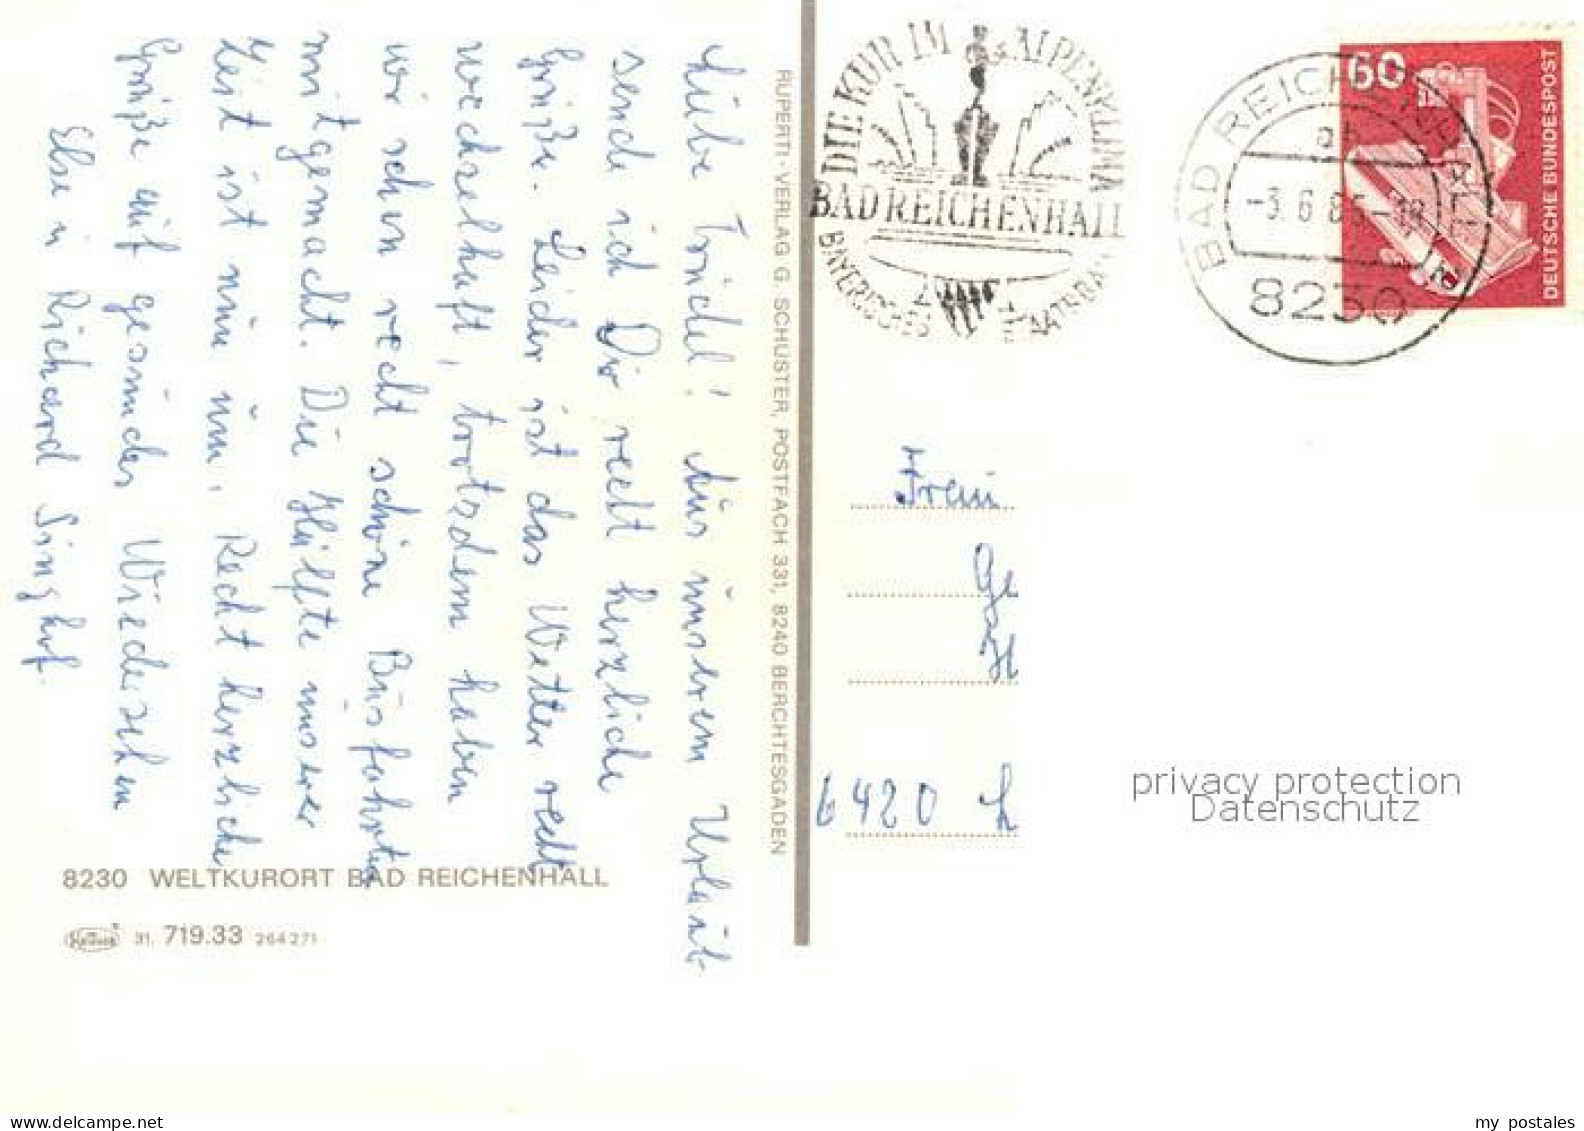 Liebe Trudel! Aus unserem Urlaub
sende ich Dir recht herzliche
Grüße. Leider ist das Wetter recht
wechselhaft, trotzdem haben
wir schon recht schöne Busfahrten
mitgemacht. Die Hälfte unserer
Zeit ist nun um. Recht herzliche
Grüße auf gesundes Wiedersehen
Else u Richard Singhof.
RUPERTI-VERLAG G. SCHUSTER, POSTFACH 331, 8240 BERCHTESGADEN
8230 WELTKURORT BAD REICHENHALL
31. 719.33 264271
DIE KUR IM ALPENKLIMA
BAD REICHENHALL
BAYERISCHES STAATSBAD
BAD REICHENHALL
-3.6.85-18
8230
60
DEUTSCHE BUNDESPOST
Frau
Ge
H
6420 L
privacy protection
Datenschutz
my postales